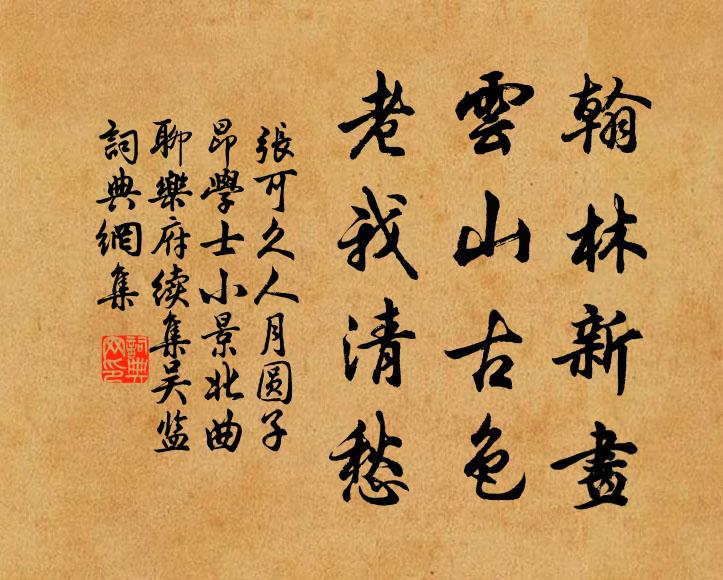 翰林新畫
雲山古色
老我清愁
張可久人月圆子
昂學士小景北曲
聊樂府续集吴监
詞典網集
詞典
网印